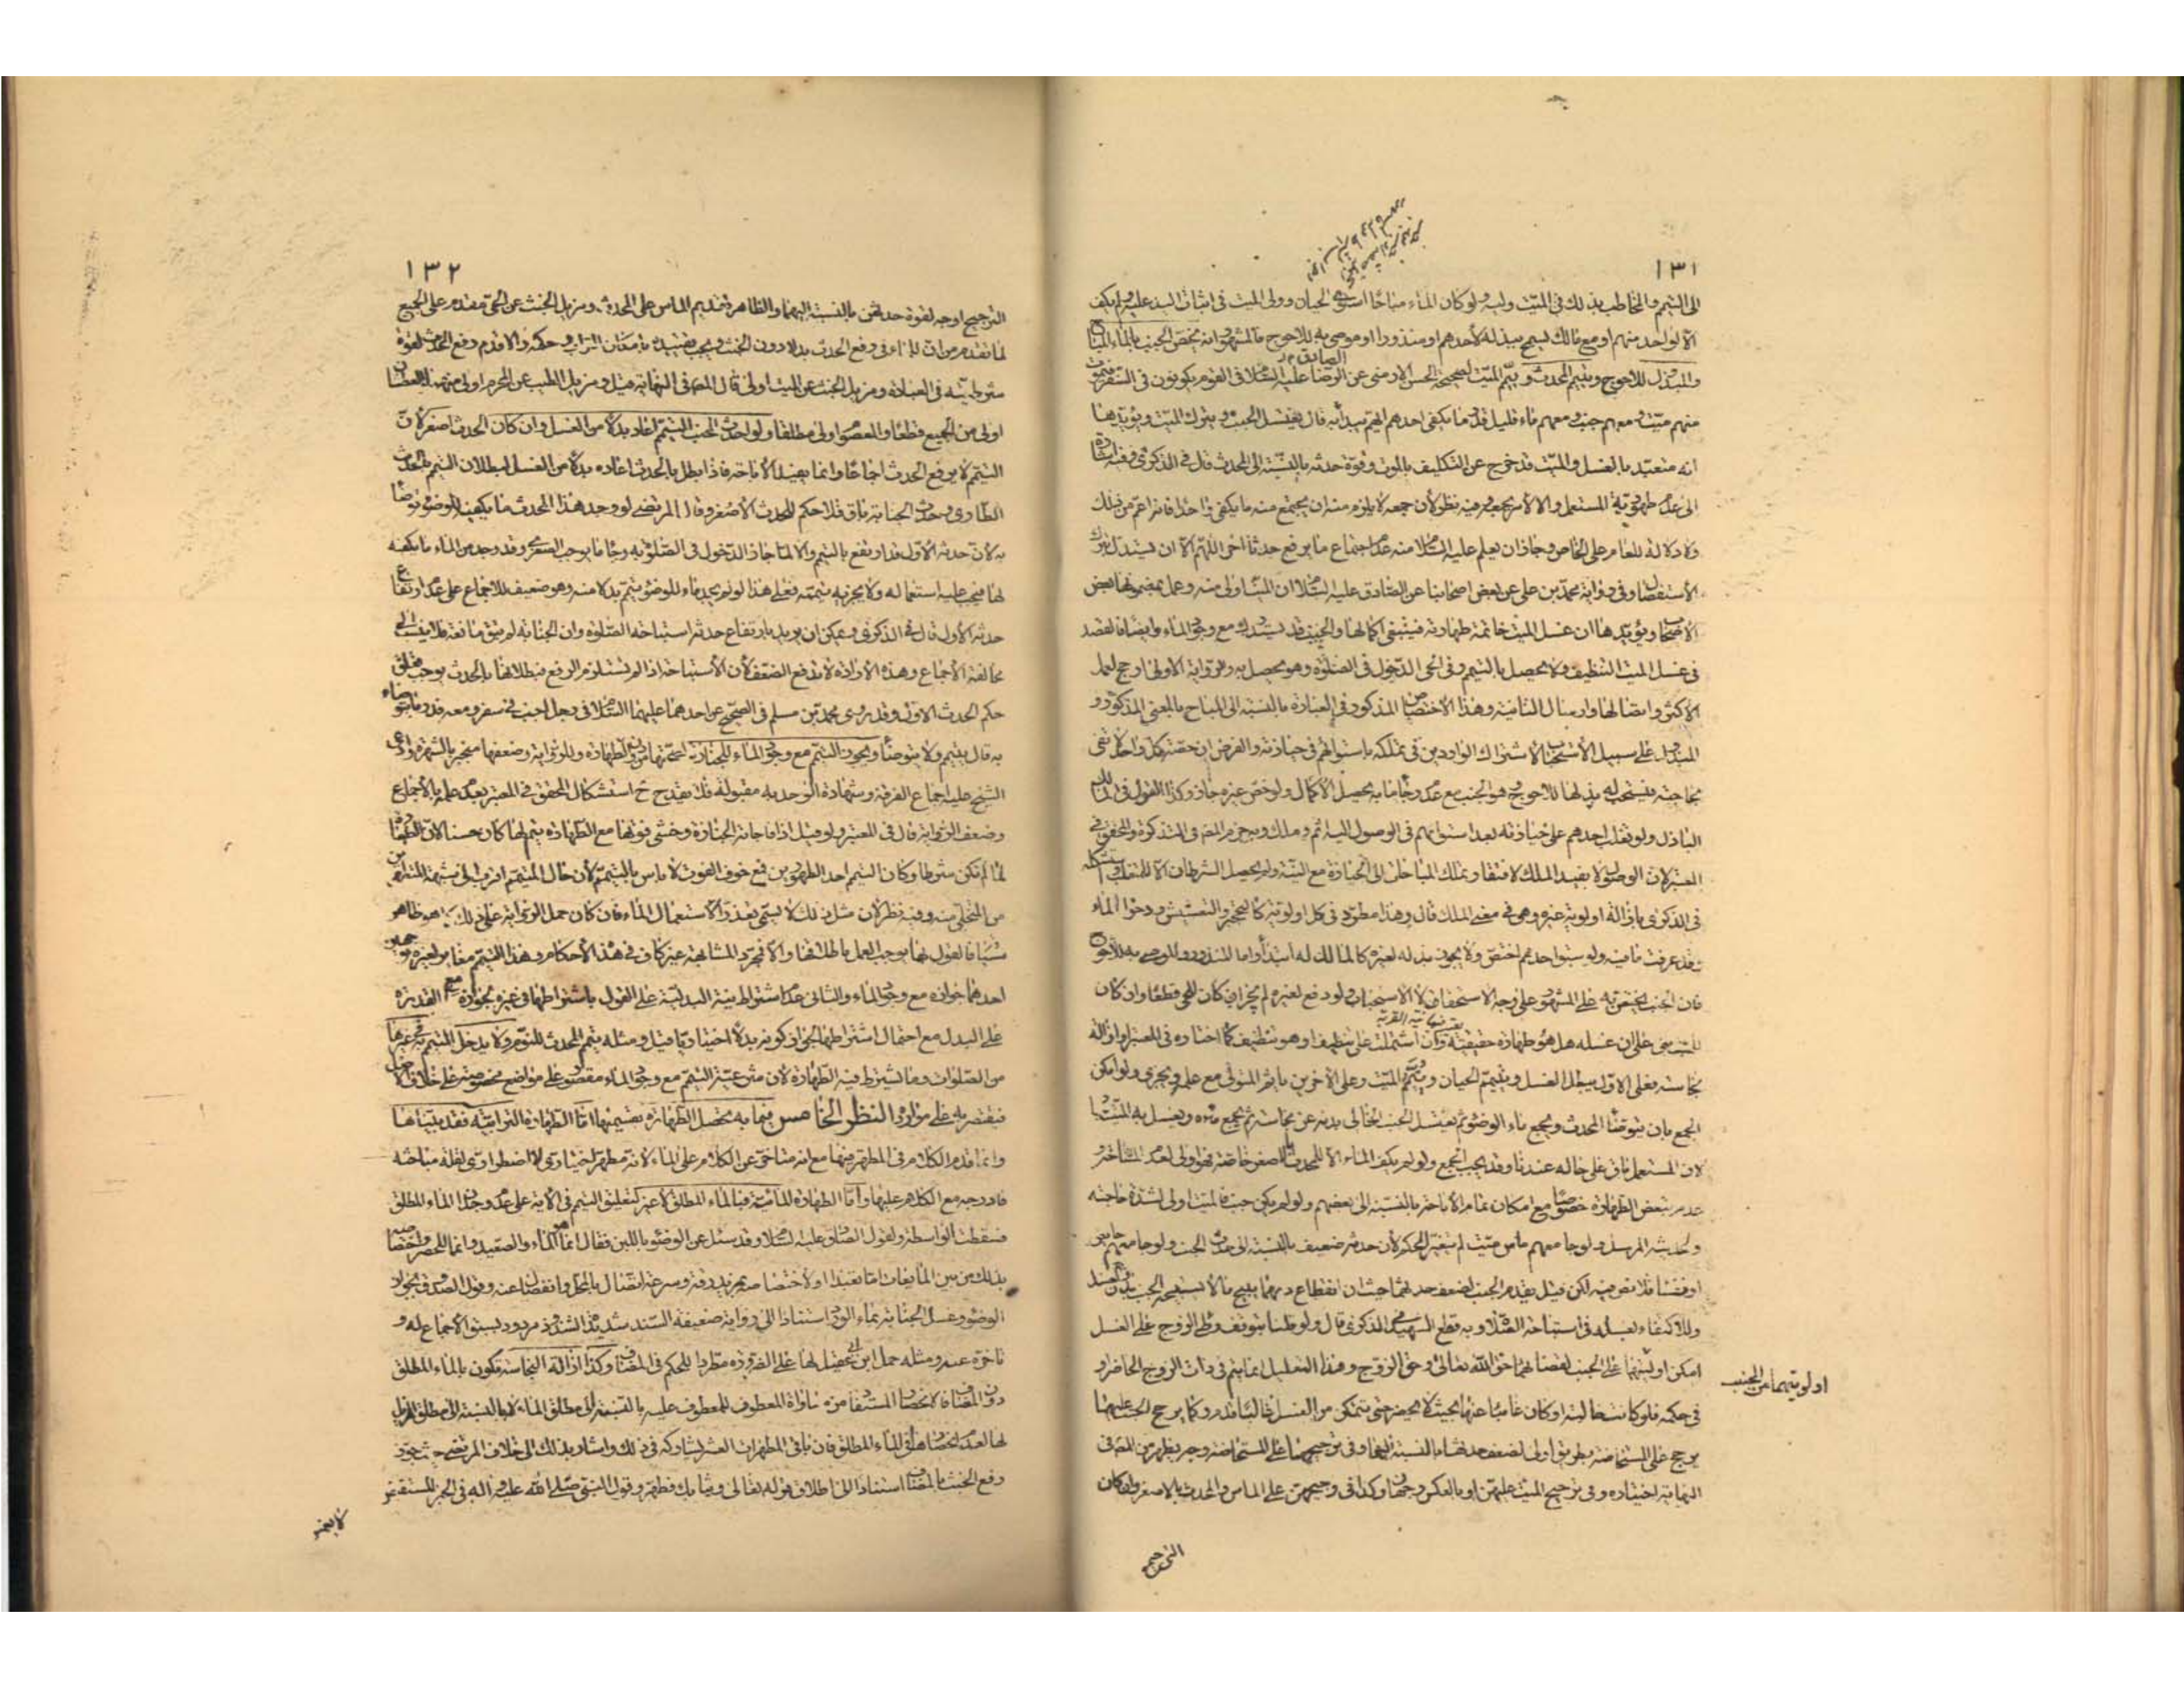 ١٣١
الى التيمم والمخاطب بذلك في الميت وليه ولو كان الماء مباحا استوى الحيان وولي الميت في اثبات اليد عليه ولو لم يكف
الا لواحد منهم او مع مالك يسمح ببذله لأحدهم او منذورا او موصى به للاحوج فالمشهور انه يختص الجنب بالماء المباح
والمبذول للاحوج ويتيمم المحدث وييمم الميت لصحيحة الحسن الارمني عن الرضا عليه السلام في القوم يكونون في السفر فيموت
منهم ميت ومعهم جنب ومعهم ماء قليل قدر ما يكفي احدهم ايهم يبدأ به قال يغتسل الجنب ويترك الميت ويؤيدها
انه متعبد بالغسل والميت قد خرج عن التكليف بالموت وقوة حدثه بالنسبة الى المحدث قال في الذكرى وفيه اشارة
الى عدم طهورية المستعمل والا لأمر بجمعه وفيه نظر لأن جمعه لا يلزم منه ان يجتمع منه ما يكفي واحدا فانه اعم من ذلك
ولا دلالة للعام على الخاص وجاز ان يعلم عليه السلام منه عدم اجتماع ما يرفع حدثا اخر اللهم الا ان يستدل بترك
الأستفصال وفي رواية محمد بن علي عن بعض اصحابنا عن الصادق عليه السلام ان الميت اولى منه وعمل بمضمونها بعض
الاصحاب ويؤيدها ان غسل الميت خاتمة طهارته فينبغي اكمالها والجنب قد يستدرك مع وجود الماء وايضا فالقصد
في غسل الميت التنظيف ولا يحصل بالتيمم وفي الحي الدخول في الصلوة وهو يحصل به والرواية الاولى ارجح لعمل
الاكثر واتصالها وارسال الثانية وهذا الاختصاص المذكور في العبارة بالنسبة الى المباح بالمعنى المذكور و
المبذول على سبيل الأستحباب لاشتراك الواردين في تملكه باستوائهم في حيازته والفرض ان حصة كل واحد لا تفي
بحاجته فيستحب له بذلها للاحوج وهو الجنب مع عدم رجاء ما به يحصل الاكمال ولو خص غيره جاز وكذا القول في المالك
الباذل ولو تغلب احدهم على حيازته بعد استوائهم في الوصول اليه اثم وملك وبه جزم المص في التذكرة والمحقق في
المعتبر لان الوصول لا يفيد الملك لافتقار تملك المباحات الى الحيازة مع النية ولم يحصل الشرطان الا للمتغلب واستشكله
في الذكرى بازالة اولوية غيره وهي في معنى الملك قال وهذا مطرد في كل اولوية كالتحجير والتعشيش ودخول الماء
وقد عرفت ما فيه ولو سبق احدهم اختص ولا يجوز بذله لغيره كالمالك له ابتداء واما المنذور والموصى به للاحوج
فان الجنب يختص به على المشهور على وجه الاستحقاق لا الاستحباب ولو دفع لغيره لم يجز ان كان للحي قطعا وان كان
للميت بني على ان غسله هل هو طهارة حقيقية وان اشتملت على تنظيف او هو تنظيف كما اختاره في المعتبر او ازالة
نجاسة فعلى الاول يبطل الغسل ويتيمم الحيان وييمم الميت وعلى الاخرين يأثم المتولي مع علمه ويجزي ولو امكن
الجمع بان يتوضأ المحدث ويجمع ماء الوضوء ثم يغتسل الجنب الخالي بدنه عن نجاسة ثم يجمع ماءه ويغسل به الميت وجب
لان المستعمل باق على حاله عندنا وقد يجب الجمع ولو لم يكف الماء الا للمحدث بالاصغر خاصة فهو اولى لعدم
تبعض الطهارة خصوصا مع امكان تمام الاباحة بالنسبة الى بعضهم ولو لم يكن جنب فالميت اولى لشدة حاجته
ولحديثه المرسل ولو جامعهم ماس ميت لم يتغير الحكم لأن حدثه ضعيف بالنسبة الى حدث الجنب ولو جامعتهم حائض
او نفساء فلا نص فيه لكن قيل بتقديم الجنب لضعف حدثهما حيث ان انقطاع دمهما يبيح ما لا يستبيحه الجنب
وللاكتفاء بغسله في استباحة الصلاة وبه قطع الشهيد في الذكرى قال ولو قلنا بتوقف وطئ الزوج على الغسل
امكن اولويتهما على الجنب لقضائهما حق الله تعالى وحق الزوج وهذا التعليل انما يتم في ذات الزوج الحاضر او
اولويتهما من الجنب
في حكمه فلو كانت خالية او كان غائبا عنها بحيث لا يحضر حتى يتمكن من الغسل غالبا قدم وكما يرجح الجنب عليهما
يرجح على المستحاضة بطريق اولى لضعف حدثها بالنسبة اليهما وفي ترجيحهما على المستحاضة وجه يظهر من المص في
النهاية اختياره وفي ترجيح الميت عليهن او بالعكس وجهان وكذا في ترجيحهن على الماس والمحدث بالاصغر وان كان
الترجيح
١٣٢
الترجيح اوجه لقوة حدثهن بالنسبة اليهما والظاهر تقديم الماس على المحدث ومزيل الخبث عن الحي مقدم على الجميع
لما تقدم من ان للماء في رفع الحدث بدلا دون الخبث ويجب تقييده بامكان التراب وحكمه والا قدم رفع الحدث لقوة
شرطيته في العبادة ومزيل الخبث عن الميت اولى قال المص في النهاية قيل ومزيل الطيب عن المحرم اولى منهما والعطشان
اولى من الجميع قطعا والمعصوم اولى مطلقا ولو احدث المجنب المتيمم اعاد بدلا من الغسل وان كان الحدث اصغر لأن
التيمم لا يرفع الحدث اجماعا وانما يفيد الأباحة فاذا بطل بالحدث اعاده بدلا من الغسل لبطلان التيمم بالحدث
الطاري وحدث الجنابة باق فلا حكم للحدث الأصغر وقال المرتضى لو وجد هذا المحدث ما يكفيه للوضوء توضأ
به لأن حدثه الأول قد ارتفع بالتيمم والا لما جاز الدخول في الصلوة به وجاء ما يوجب الصغرى وقد وجد من الماء ما يكفيه
لها فيجب عليه استعماله ولا يجزيه تيممه فعلى هذا لو لم يجد ماء للوضوء تيمم بدلا منه وهو ضعيف للاجماع على عدم ارتفاع
حدثه الأول قال في الذكرى ويمكن ان يريد بارتفاع حدثه استباحة الصلوة وان الجنابة لم تبق مانعة فلا ينسب الى
مخالفة الأجماع وهذه الارادة لا تدفع الضعف لأن الأستباحة اذا لم تستلزم الرفع فبطلانها بالحدث يوجب تعلق
حكم الحدث الاول وقد روى محمد بن مسلم في الصحيح عن احدهما عليهما السلام في رجل اجنب في سفر ومعه قدر ما يتوضأ
به قال يتيمم ولا يتوضأ ويجوز التيمم مع وجود الماء للجنازة لصحتها من دون الطهارة وللرواية وضعفها منجبر بالشهرة وادعى
الشيخ عليه اجماع الفرقة وشهادة الواحد به مقبولة فلا يقدح ح استشكال المحقق في المعتبر بعدم علمه بالأجماع
وضعف الرواية قال في المعتبر ولو قيل اذا فاجأته الجنازة وخشي فوتها مع الطهارة تيمم لها كان حسنا لان الطهارة
لما لم تكن شرطا وكان التيمم احد الطهورين فمع خوف الفوت لا بأس بالتيمم لأن حال المتيمم اقرب الى شبه المتطهرين
من المتخلي منه وفيه نظر لأن مثل ذلك لا يسمى تعذر الاستعمال الماء فان كان حمل الرواية على ذلك كما هو ظاهر
سياق القول بها يوجب العمل باطلاقها والا فمجرد المشابهة غير كاف في هذه الأحكام وهذا التيمم مغاير لغيره من وجهين
احدهما جوازه مع وجود الماء والثاني عدم اشتراط نية البدلية على القول باشتراطها في غيره لجوازه مع القدرة
على المبدل مع احتمال اشتراطها لجواز كونه بدلا اختياريا قيل ومثله تيمم المحدث للنوم ولا يدخل المتيمم به في غيرها
من الصلوات وما يشترط فيه الطهارة لان شرعية التيمم مع وجود الماء مقصور على مواضع مخصوصة على خلاف الاصل
فيقتصر به على موارد النظر الخامس فيما به تحصل الطهارة بقسيميها اما الطهارة الترابية فقد بيناها
وانما قدم الكلام في المطهر فيها مع انه متأخر عن الكلام على الماء لأنه مطهر اختياري لا اضطراري لقلة مباحثه
فادرجه مع الكلام عليها واما الطهارة المائية فبالماء المطلق لا غير لتعليق التيمم في الآية على عدم وجود الماء المطلق
فسقطت الواسطة ولقول الصادق عليه السلام وقد سئل عن الوضوء باللبن فقال انما هو الماء والصعيد وانما للحصر واختصاصه
بذلك من بين المايعات اما تعبدا او لاختصاصه بمزيد رقة وسرعة اتصال بالمحل وانفصال عنه وقول الصدوق بجواز
الوضوء وغسل الجنابة بماء الورد استنادا الى رواية ضعيفة السند شديدة الشذوذ مردود لسبق الاجماع له و
تأخره عنه ومثله حمل ابن ابي عقيل لها على الضرورة مطردا للحكم في المضاف وكذا ازالة النجاسة تكون بالماء المطلق
دون المضاف لانحصار المستفاد من مساواة المعطوف للمعطوف عليه بالنسبة الى مطلق الماء لا بالنسبة الى مطلق المزيل
لها لعدم انحصارها في الماء المطلق فان باقي المطهرات العشر يشاركه في ذلك واشار بذلك الى خلاف المرتضى حيث جوز
رفع الخبث بالمضاف استنادا الى اطلاق قوله تعالى وثيابك فطهر وقول النبي صلى الله عليه واله في الخبر للمستيقظ
لا يغمس